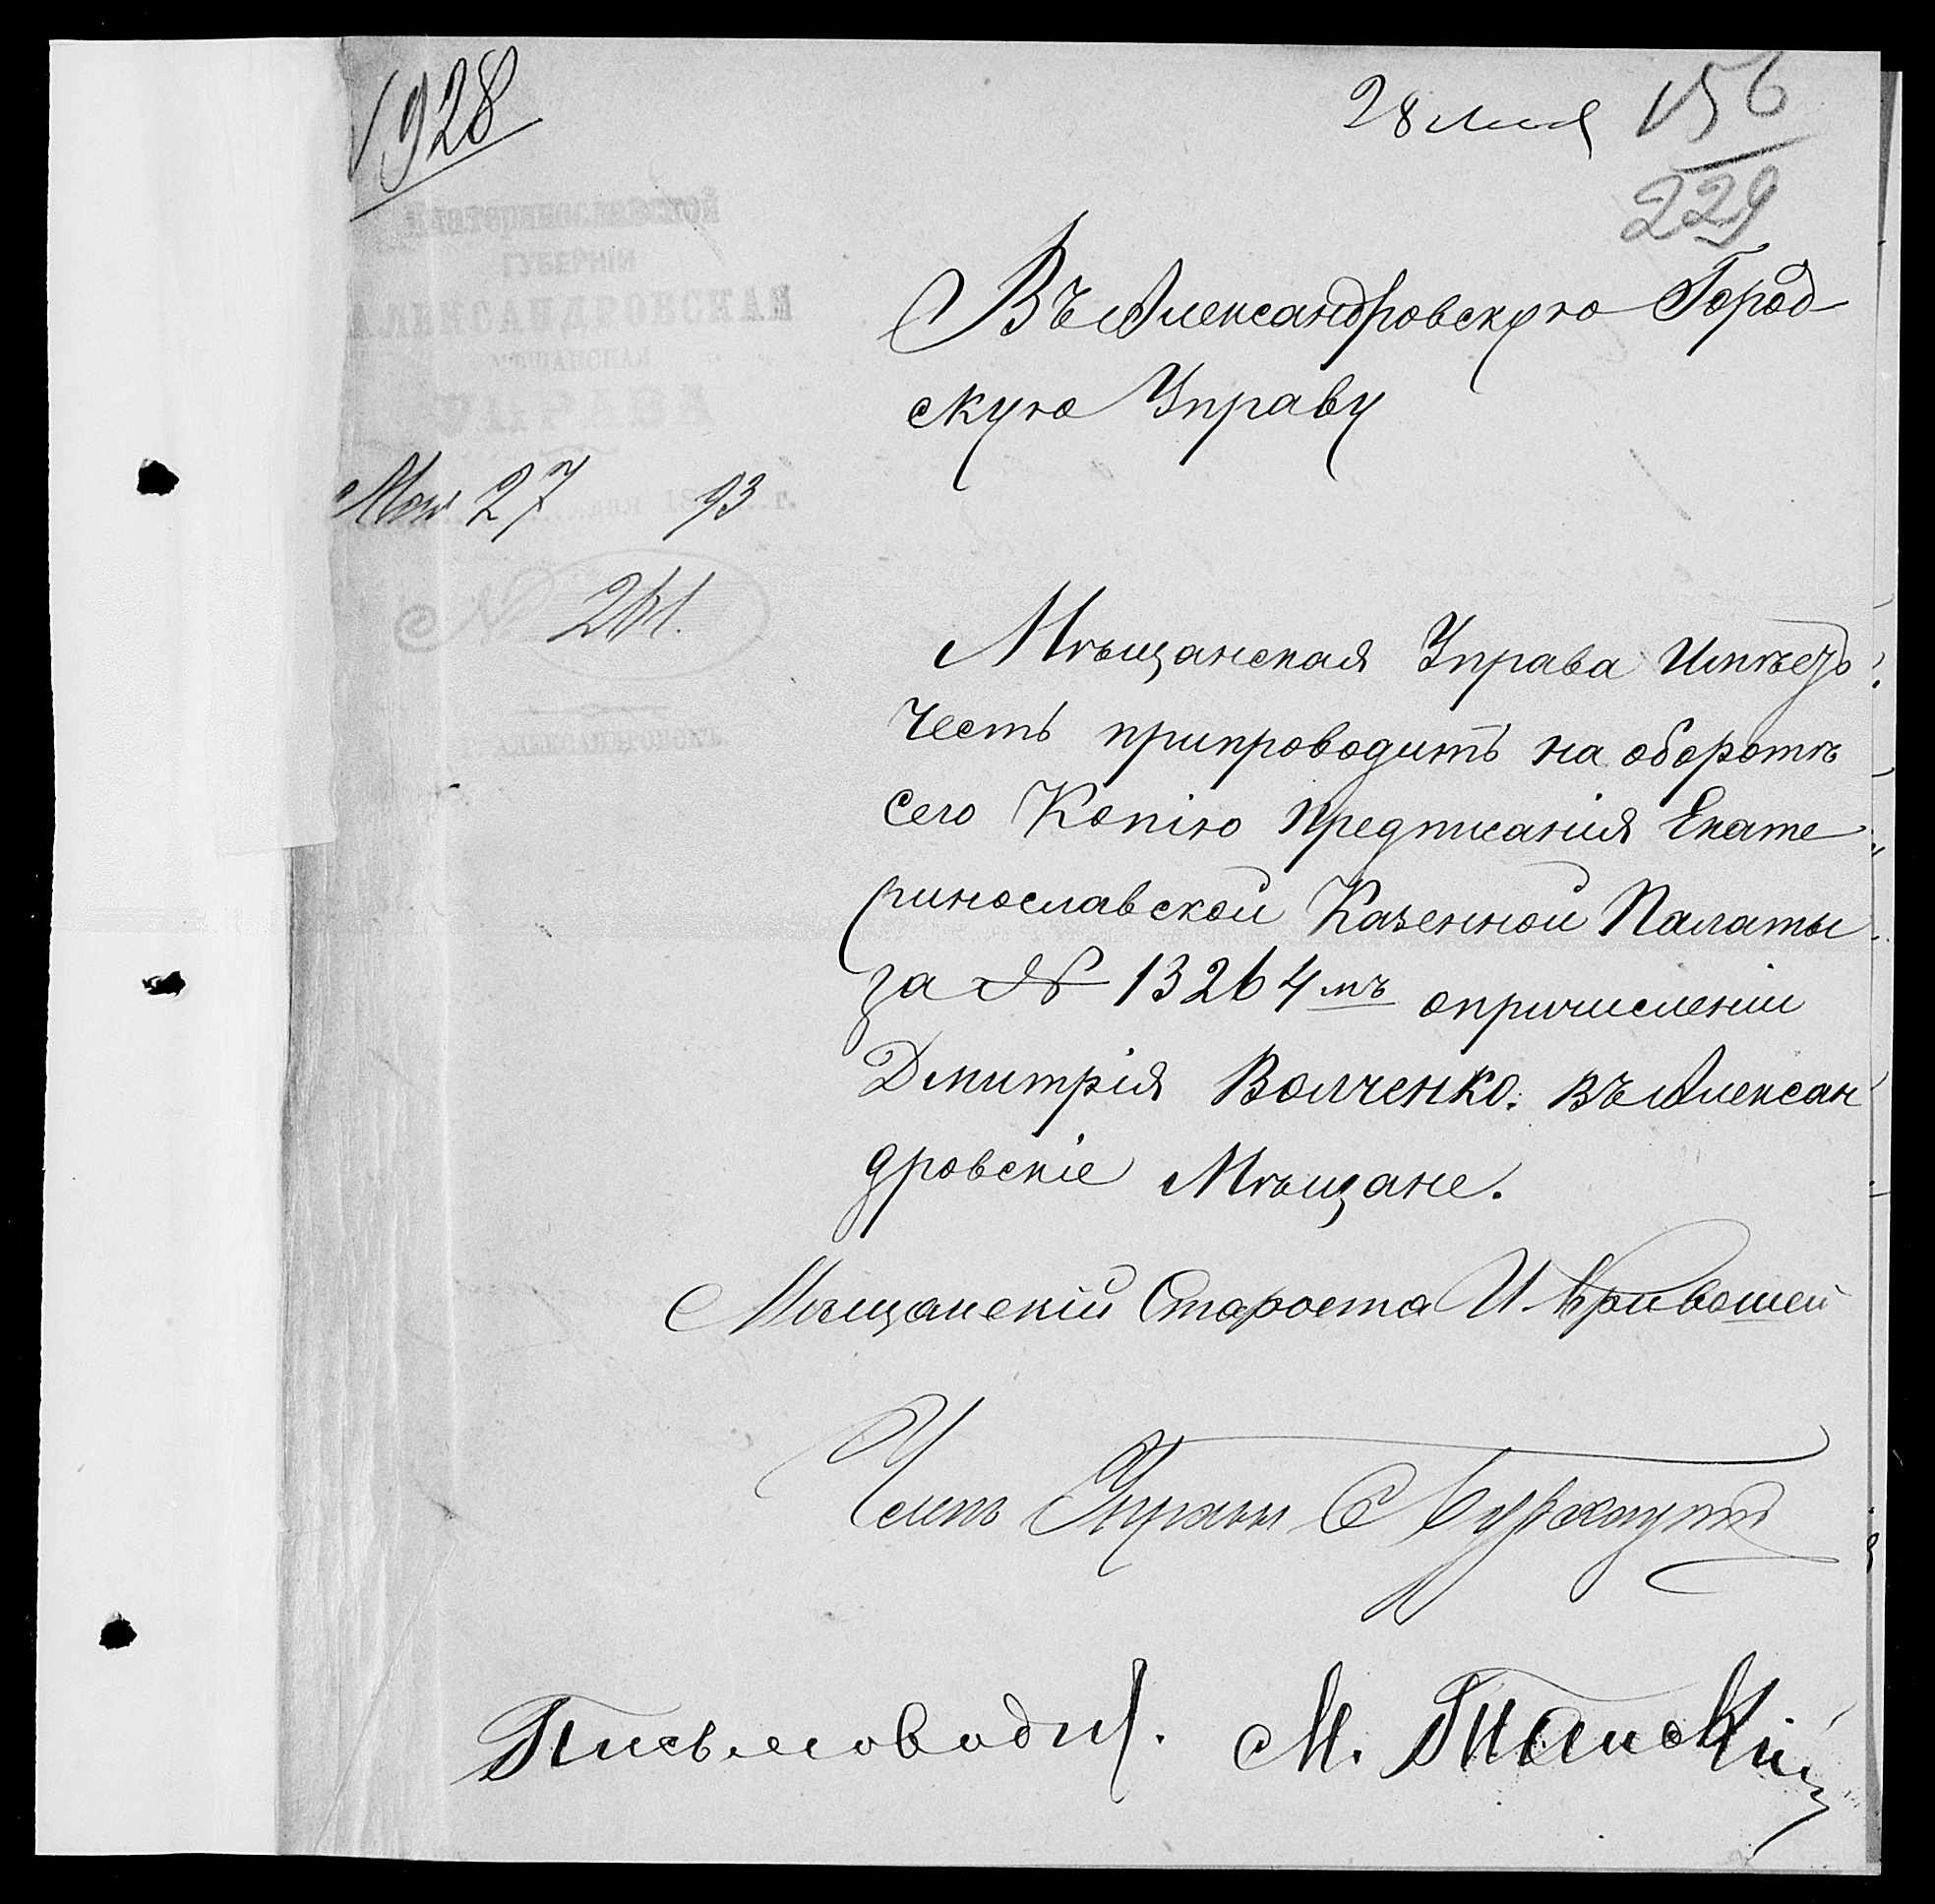 1928
28 Мая
156
229
Екатеринославской
ГУБЕРНІИ
АЛЕКСАНДРОВСКАЯ
МѢЩАНСКАЯ
УПРАВА
Мая 27 дня 1893 г.
№ 261.
Г. АЛЕКСАНДРОВСКЪ
Въ Александровскую Город
скую Управу
Мѣщанская Управа Имѣетъ
Честь припроводить на оборотѣ
сего Копію предписанія Екате
ринославской Казенной Палаты
за № 13264мъ опричисленіи
Дмитрія Волченко. въ Алексан
дровскіе Мѣщане.
Мѣщанскій Староста И Кривошей
Членъ Управы С
Письмоводит. М.